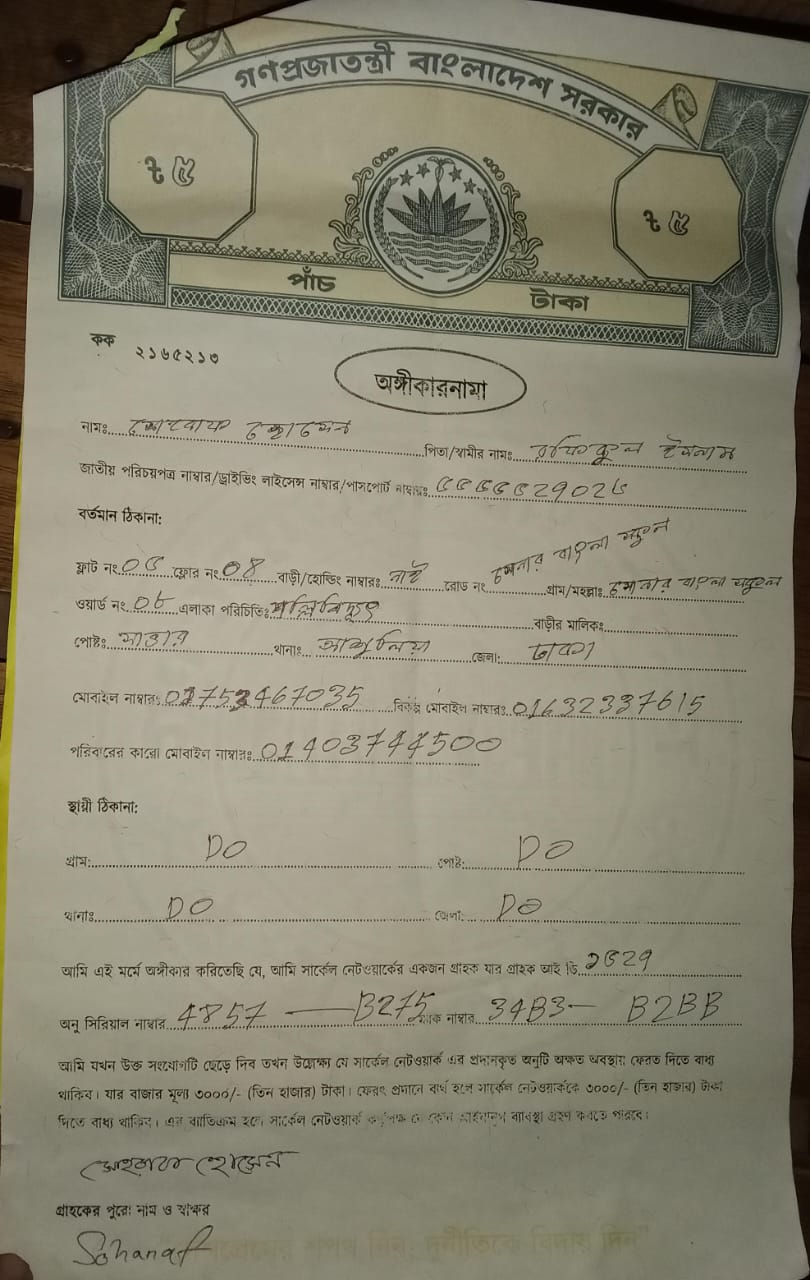 গণপ্রজাতন্ত্রী বাংলাদেশ সরকার
৳ ৫ ৳ ৫
পাঁচ টাকা
কক ২১৬৫২১৩
অঙ্গীকারনামা
নামঃ হোসেন পিতা/স্বামীর নামঃ রফিকুল ইসলাম
জাতীয় পরিচয়পত্র নাম্বার/ড্রাইভিং লাইসেন্স নাম্বার/পাসপোর্ট নাম্বারঃ
বর্তমান ঠিকানা:
ফ্লাট নং ফ্লোর নং 08 বাড়ী/হোল্ডিং নাম্বারঃ নাই রোড নং সোনার বাংলা স্কুল গ্রাম/মহল্লাঃ সোনার বাংলা স্কুল
ওয়ার্ড নং এলাকা পরিচিতিঃ পল্লিবিদ্যুৎ বাড়ীর মালিকঃ
পোষ্টঃ সাভার থানাঃ আশুলিয়া জেলা: ঢাকা
মোবাইল নাম্বারঃ 01753467035 বিকল্প মোবাইল নাম্বারঃ 01632337615
পরিবারের কারো মোবাইল নাম্বারঃ 01403744500
স্থায়ী ঠিকানা:
গ্রাম: DO পোষ্ট: DO
থানাঃ DO জেলা: DO
আমি এই মর্মে অঙ্গীকার করিতেছি যে, আমি সার্কেল নেটওয়ার্কের একজন গ্রাহক যার গ্রাহক আই ডি
অনু সিরিয়াল নাম্বার 4857 — B275 ম্যাক নাম্বার 34B3 — B2BB
আমি যখন উক্ত সংযোগটি ছেড়ে দিব তখন উল্লেক্ষ্য যে সার্কেল নেটওয়ার্ক এর প্রদানকৃত অনুটি অক্ষত অবস্থায় ফেরত দিতে বাধ্য
থাকিব। যার বাজার মূল্য ৩০০০/- (তিন হাজার) টাকা। ফেরৎ প্রদানে ব্যর্থ হলে সার্কেল নেটওয়ার্ককে ৩০০০/- (তিন হাজার) টাকা
দিতে বাধ্য থাকিব। এর ব্যাতিক্রম হলে সার্কেল নেটওয়ার্ক কর্তৃপক্ষ যে কোন আইনানুগ ব্যাবস্থা গ্রহণ করতে পারবে।
হোসেন
গ্রাহকের পুরো নাম ও স্বাক্ষর
Sohanaf
শপথ নিন, দুর্নীতিকে বিদায় দিন"